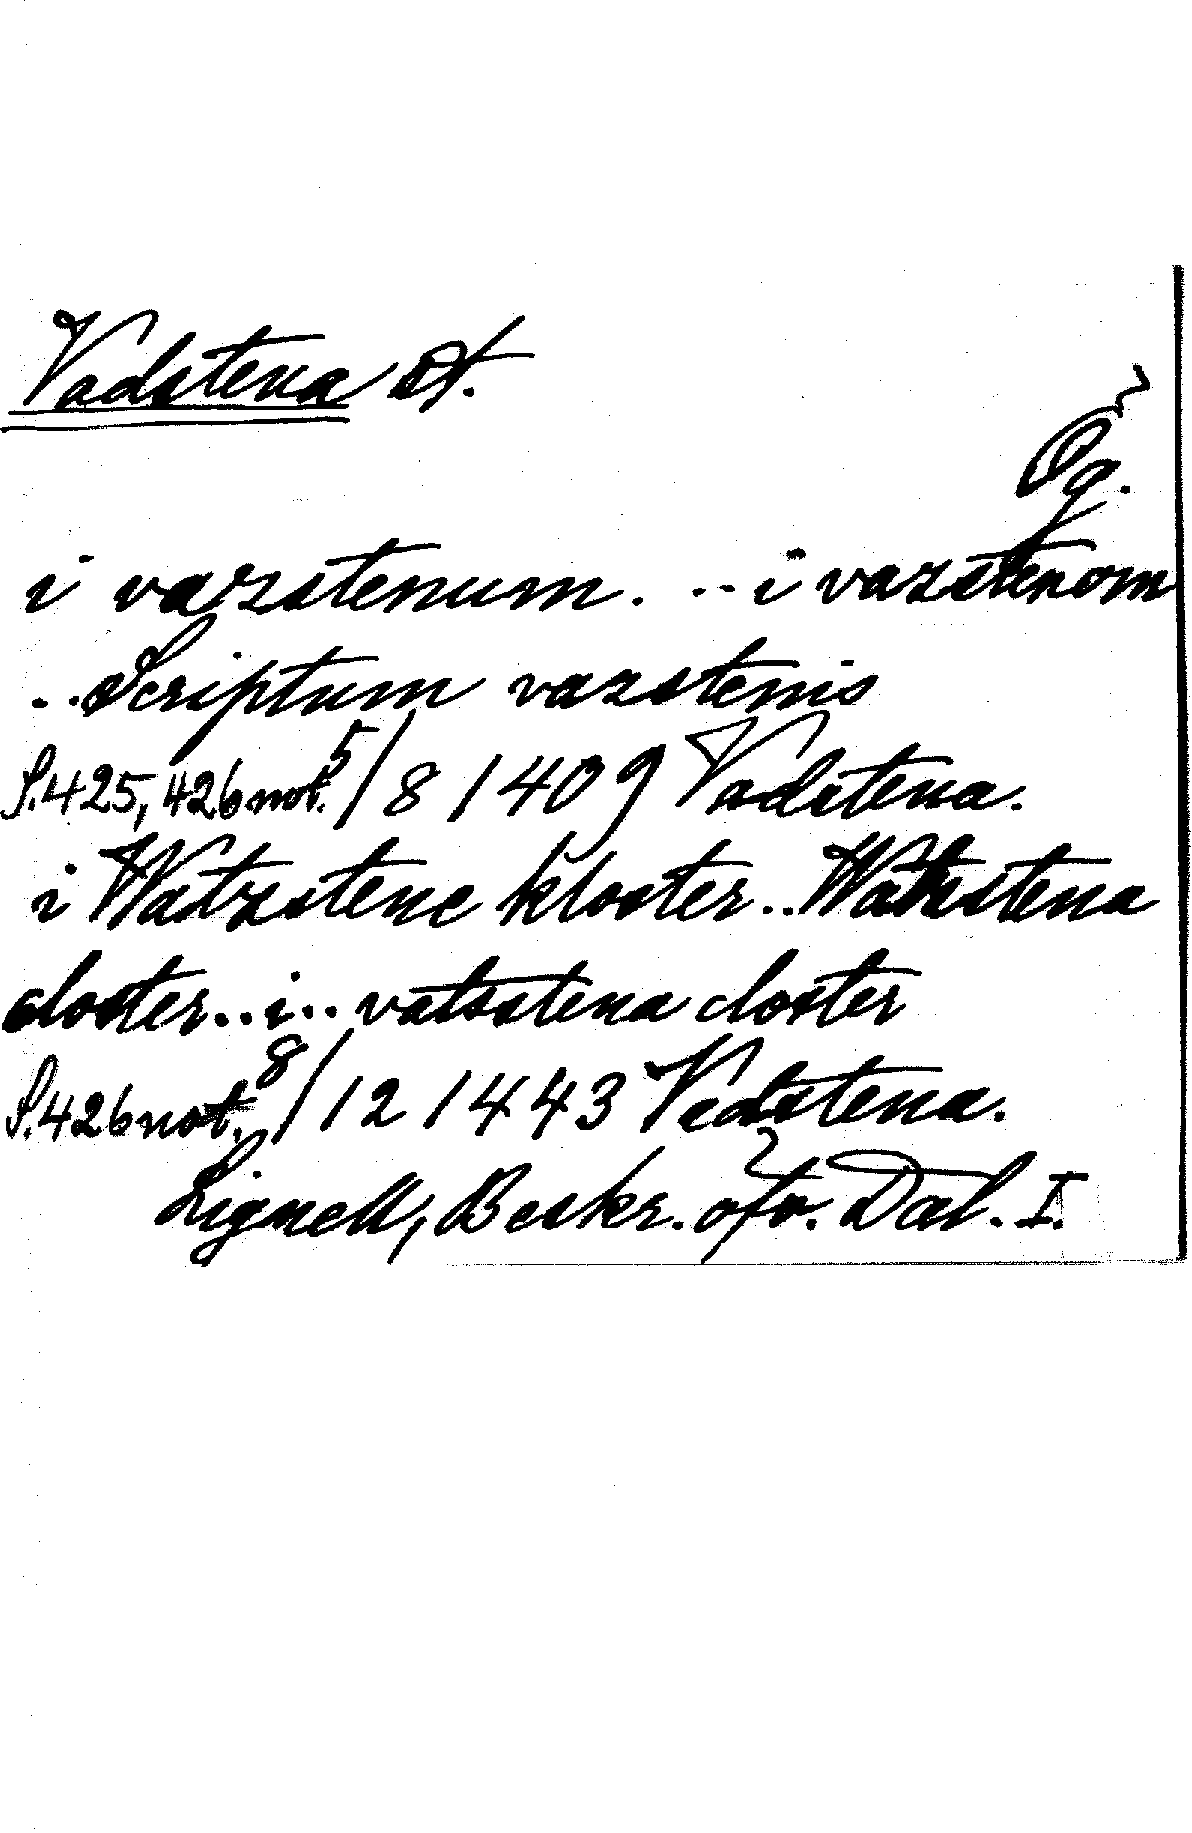 Vadstena st.
Ög.
i vazstenum. ..i vazstenom
..Scriptum vazstenis
S.425, 426 not. 5/8 1409 Vadstena.
i Watzstene kloster..Watzstena
closter..i..vatsstena closter
S.426 not. 8/12 1443 Vadstena.
Lignell, Beskr. öfv. Dal. I.